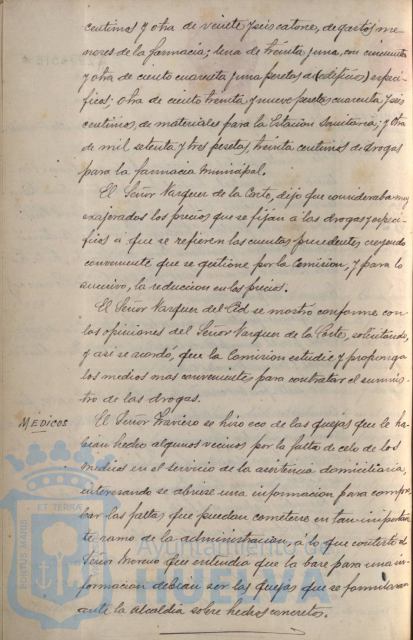 centimos y otra de veinte y seis catorce, de gastos me-
nores de la farmacia; una de treinta y una, con cincuenta
y otra de ciento cuarenta y una pesetas de específi-
ficos; otra de ciento treinta y nueve pesetas cuarenta y seis
centimos, de materiales para la Estacion Sanitaria; y otra
de mil setenta y tres pesetas, treinta centimos de drogas
para la farmacia municipal.
El Señor Vazquez de la Corte, dijo que consideraba muy
exajerados los precios que se fijan á las drogas y especi-
ficos a que se refieren las cuentas precedentes creyendo
conveniente que se gestione por la Comision, y para lo
sucesivo, la reduccion en los precios.
El Señor Vazquez del Cid se mostró conforme con
las opiniones del Señor Vazquez de la Corte, solicitando,
y asi se acordó, que la Comision estudie y proponga
los medios mas convenientes para contratar el suminis-
tro de las drogas.
MEDICOS
El Señor Traviero se hizo eco de las quejas que le ha-
bian hecho algunos vecinos por la falta de celo de los
medicos en el servicio de la asistencia domiciliaria,
interesando se abriese una informacion para compro-
bar las faltas que puedan cometerse en tan importan-
te ramo de la administracion, á lo que contestó el
Señor Moreno que entendia que la base para una in-
formacion debian ser las quejas que se formularan
ante la alcaldia sobre hechos concretos.
PORTUS MARIS
ET TERRAE
Ayuntamiento de
HUELVA